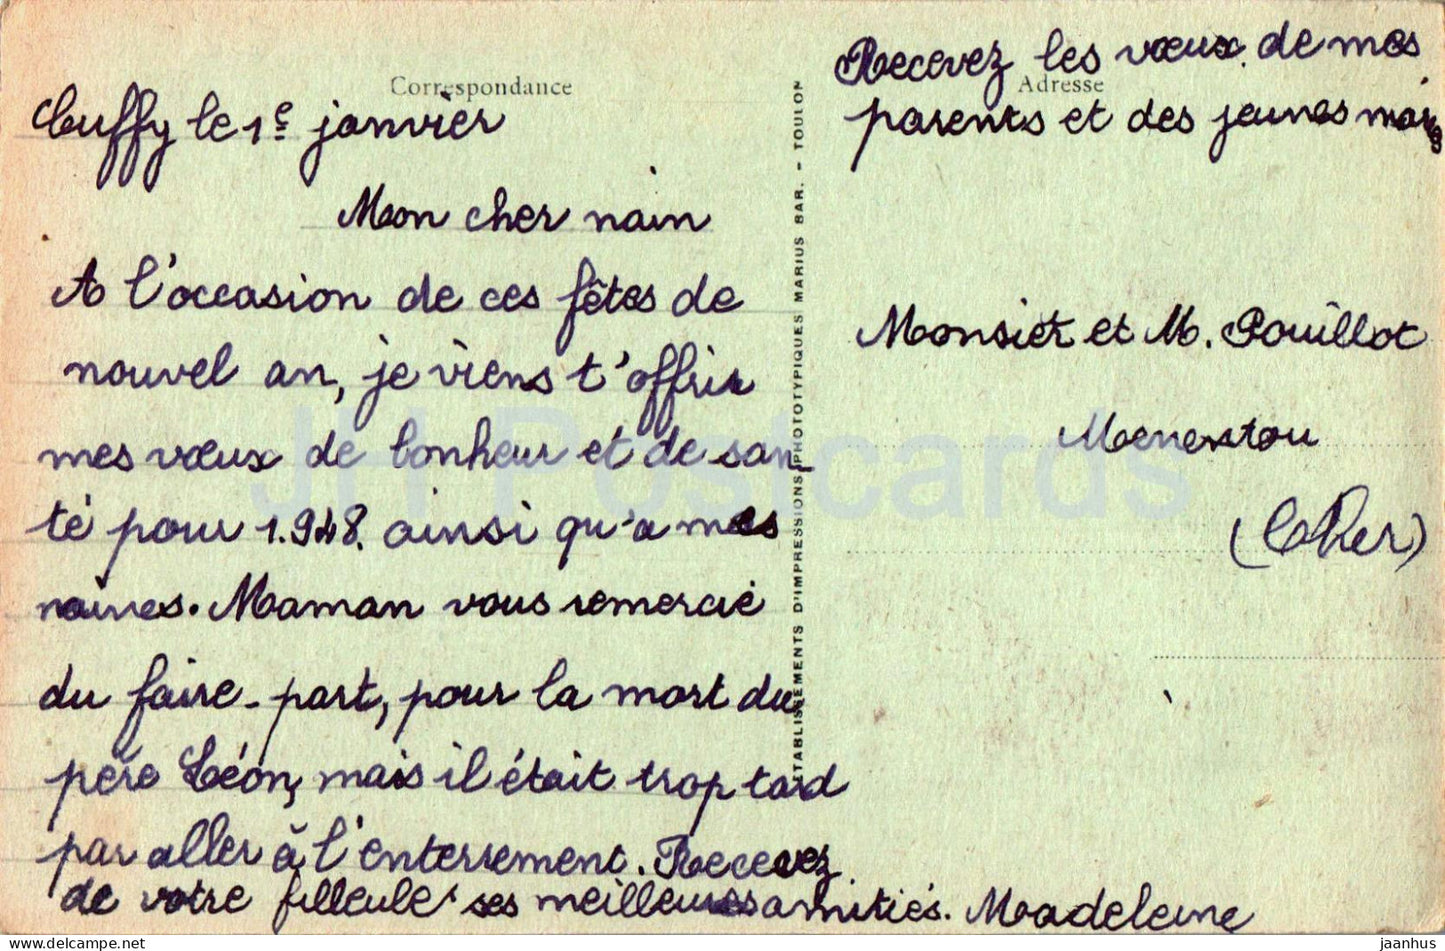 Correspondance
Cuffy le 1e janvier
Mon cher nain
A l'occasion de ces fêtes de
nouvel an, je viens t'offrir
mes vœux de bonheur et de san-
té pour 1.948. ainsi qu'a mes
naines. Maman vous remercie
du faire-part, pour la mort du
père Léon, mais il était trop tard
par aller à l'enterrement. Recevez
de votre filleule ses meilleures amitiés. Madeleine
ETABLISSEMENTS D'IMPRESSIONS PHOTOTYPIQUES MARIUS BAR. - TOULON
Recevez les vœux de mes
Adresse
parents et des jeunes mariés
Monsier et M. Pouillot
Menestou
(Cher)
JH Postcards
delcampe.net
jaanhus